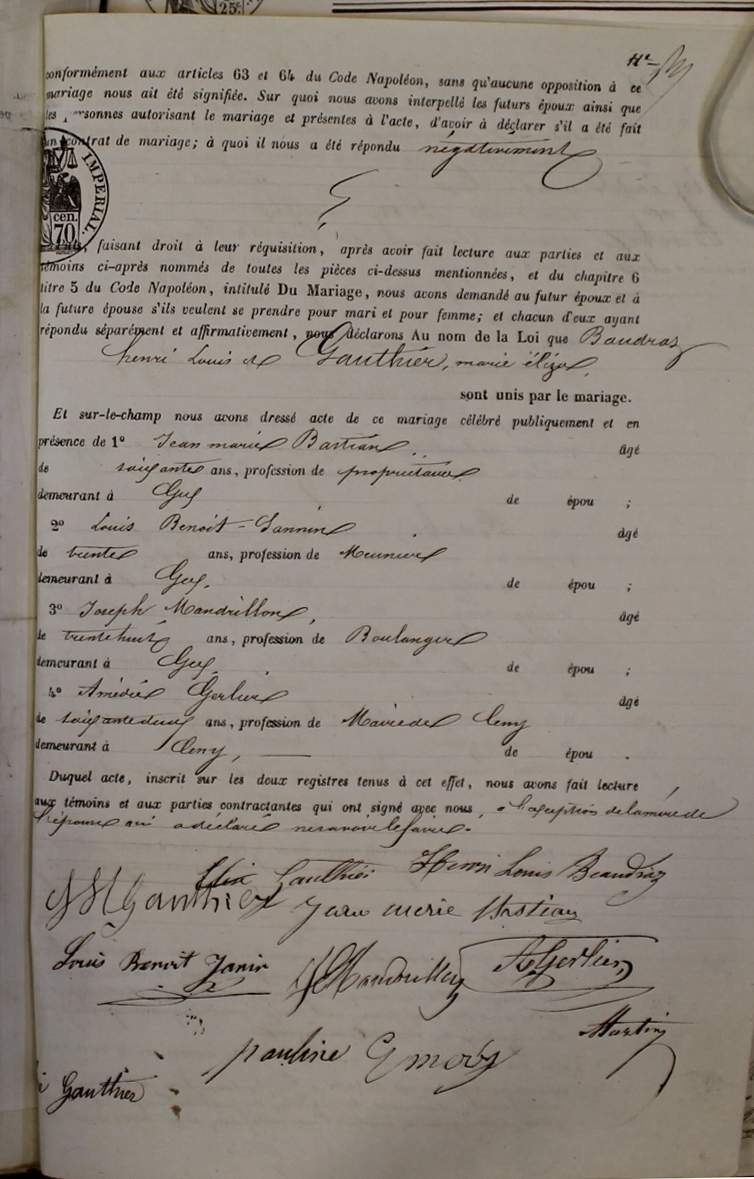 25c
conformément aux articles 63 et 64 du Code Napoléon, sans qu'aucune opposition à ce
mariage nous ait été signifiée. Sur quoi nous avons interpellé les futurs époux ainsi que
les personnes autorisant le mariage et présentes à l'acte, d'avoir à déclarer s'il a été fait
un contrat de mariage; à quoi il nous a été répondu négativement
IMPERIAL.
cen.
70
faisant droit à leur réquisition, après avoir fait lecture aux parties et aux
témoins ci-après nommés de toutes les pièces ci-dessus mentionnées, et du chapitre 6
titre 5 du Code Napoléon, intitulé Du Mariage, nous avons demandé au futur époux et à
la future épouse s'ils veulent se prendre pour mari et pour femme; et chacun d'eux ayant
répondu séparément et affirmativement, nous déclarons Au nom de la Loi que Baudraz
henri Louis et Gauthier, marie éliza,
sont unis par le mariage.
Et sur-le-champ nous avons dressé acte de ce mariage célébré publiquement et en
présence de 1º Jean marie Bastian âgé
de soixante ans, profession de propriétaire
demeurant à de épou ;
2º Louis Benoit Jannin âgé
de trente ans, profession de Meunier
demeurant à de épou ;
3º Joseph Mandrillon, âgé
de trente huit ans, profession de Boulanger
demeurant à de épou ;
4º Amédée Gerlier âgé
de soixante deux ans, profession de Maire de
demeurant à de épou .
Duquel acte, inscrit sur les deux registres tenus à cet effet, nous avons fait lecture
aux témoins et aux parties contractantes qui ont signé avec nous, à l'exception de la mère de
l'épouse qui a déclaré ne savoir le faire.
Gauthier Henri Louis Beaudraz
Gauthier Jean marie Bastian
Louis Benoit Janin Mandrillon A Gerlier
Martin
pauline
Gauthier